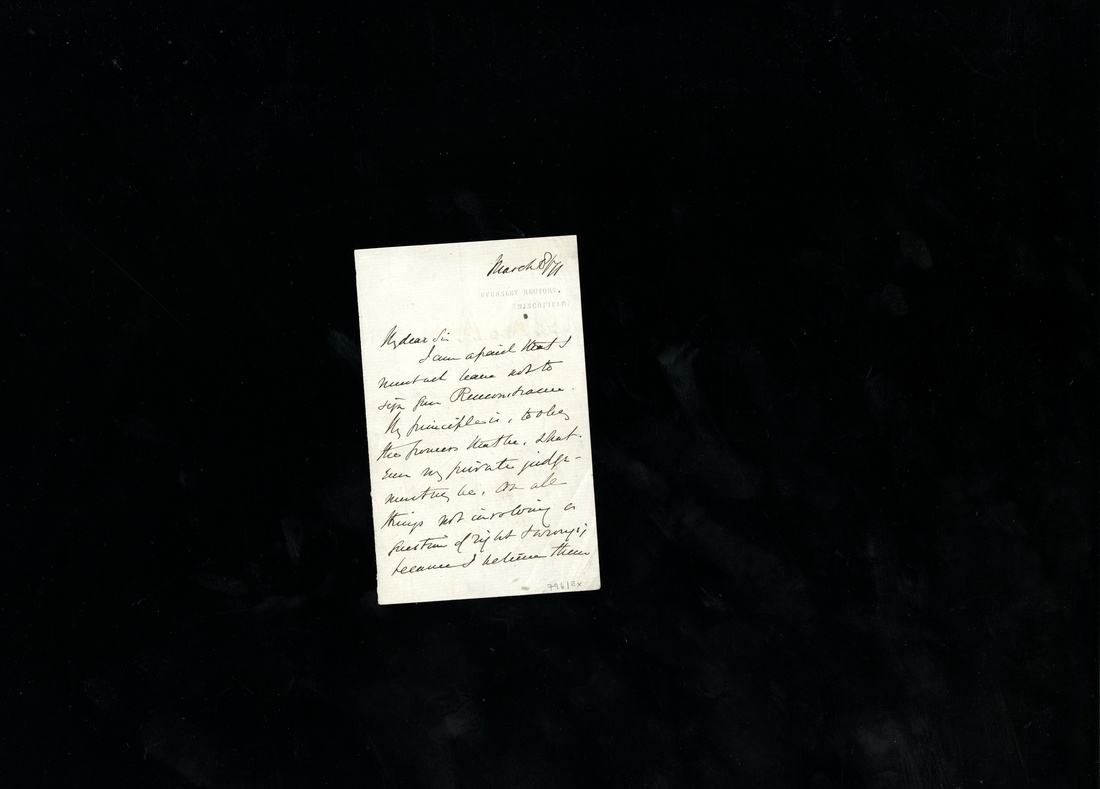 March 8/71
EVERSLEY RECTORY,
WINCHFIELD.
My dear Sir
I am afraid that I
must ask leave not to
sign your Remonstrance.
My principle is, to obey
the powers that be, what-
ever my private judge-
ment may be, on all
things not involving a
question of right & wrong;
because I believe them
796/8x